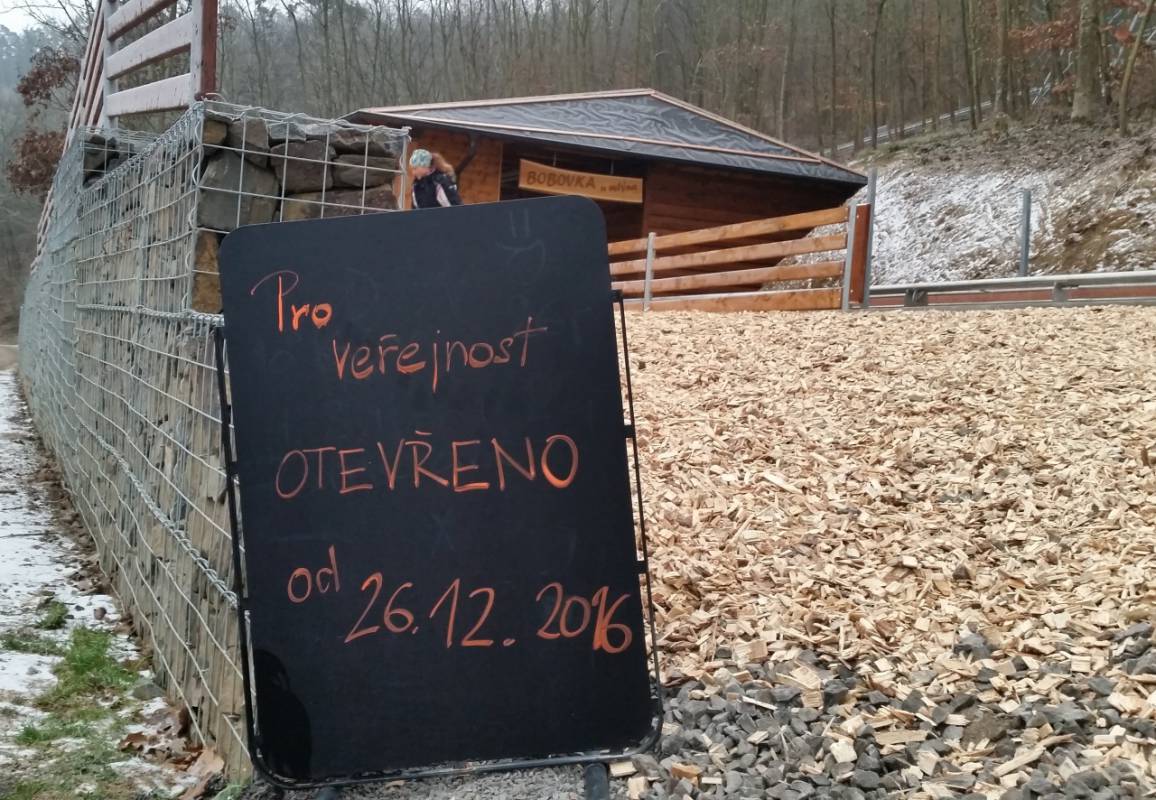 BOBOVKA u mlýna
Pro
veřejnost
OTEVŘENO
od 26.12.2016